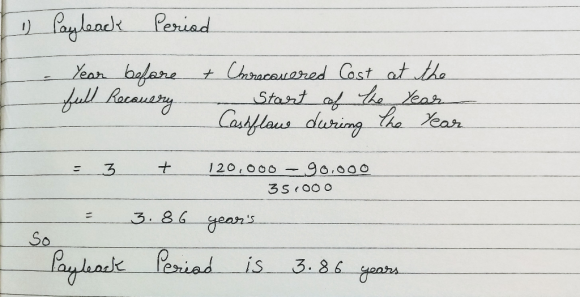 1) Payback Period
= Year before + Unrecovered Cost at the
full Recovery Start of the Year
Cashflow during the Year
= 3 + 120,000 - 90,000
35,000
= 3.86 year's
So
Payback Period is 3.86 years